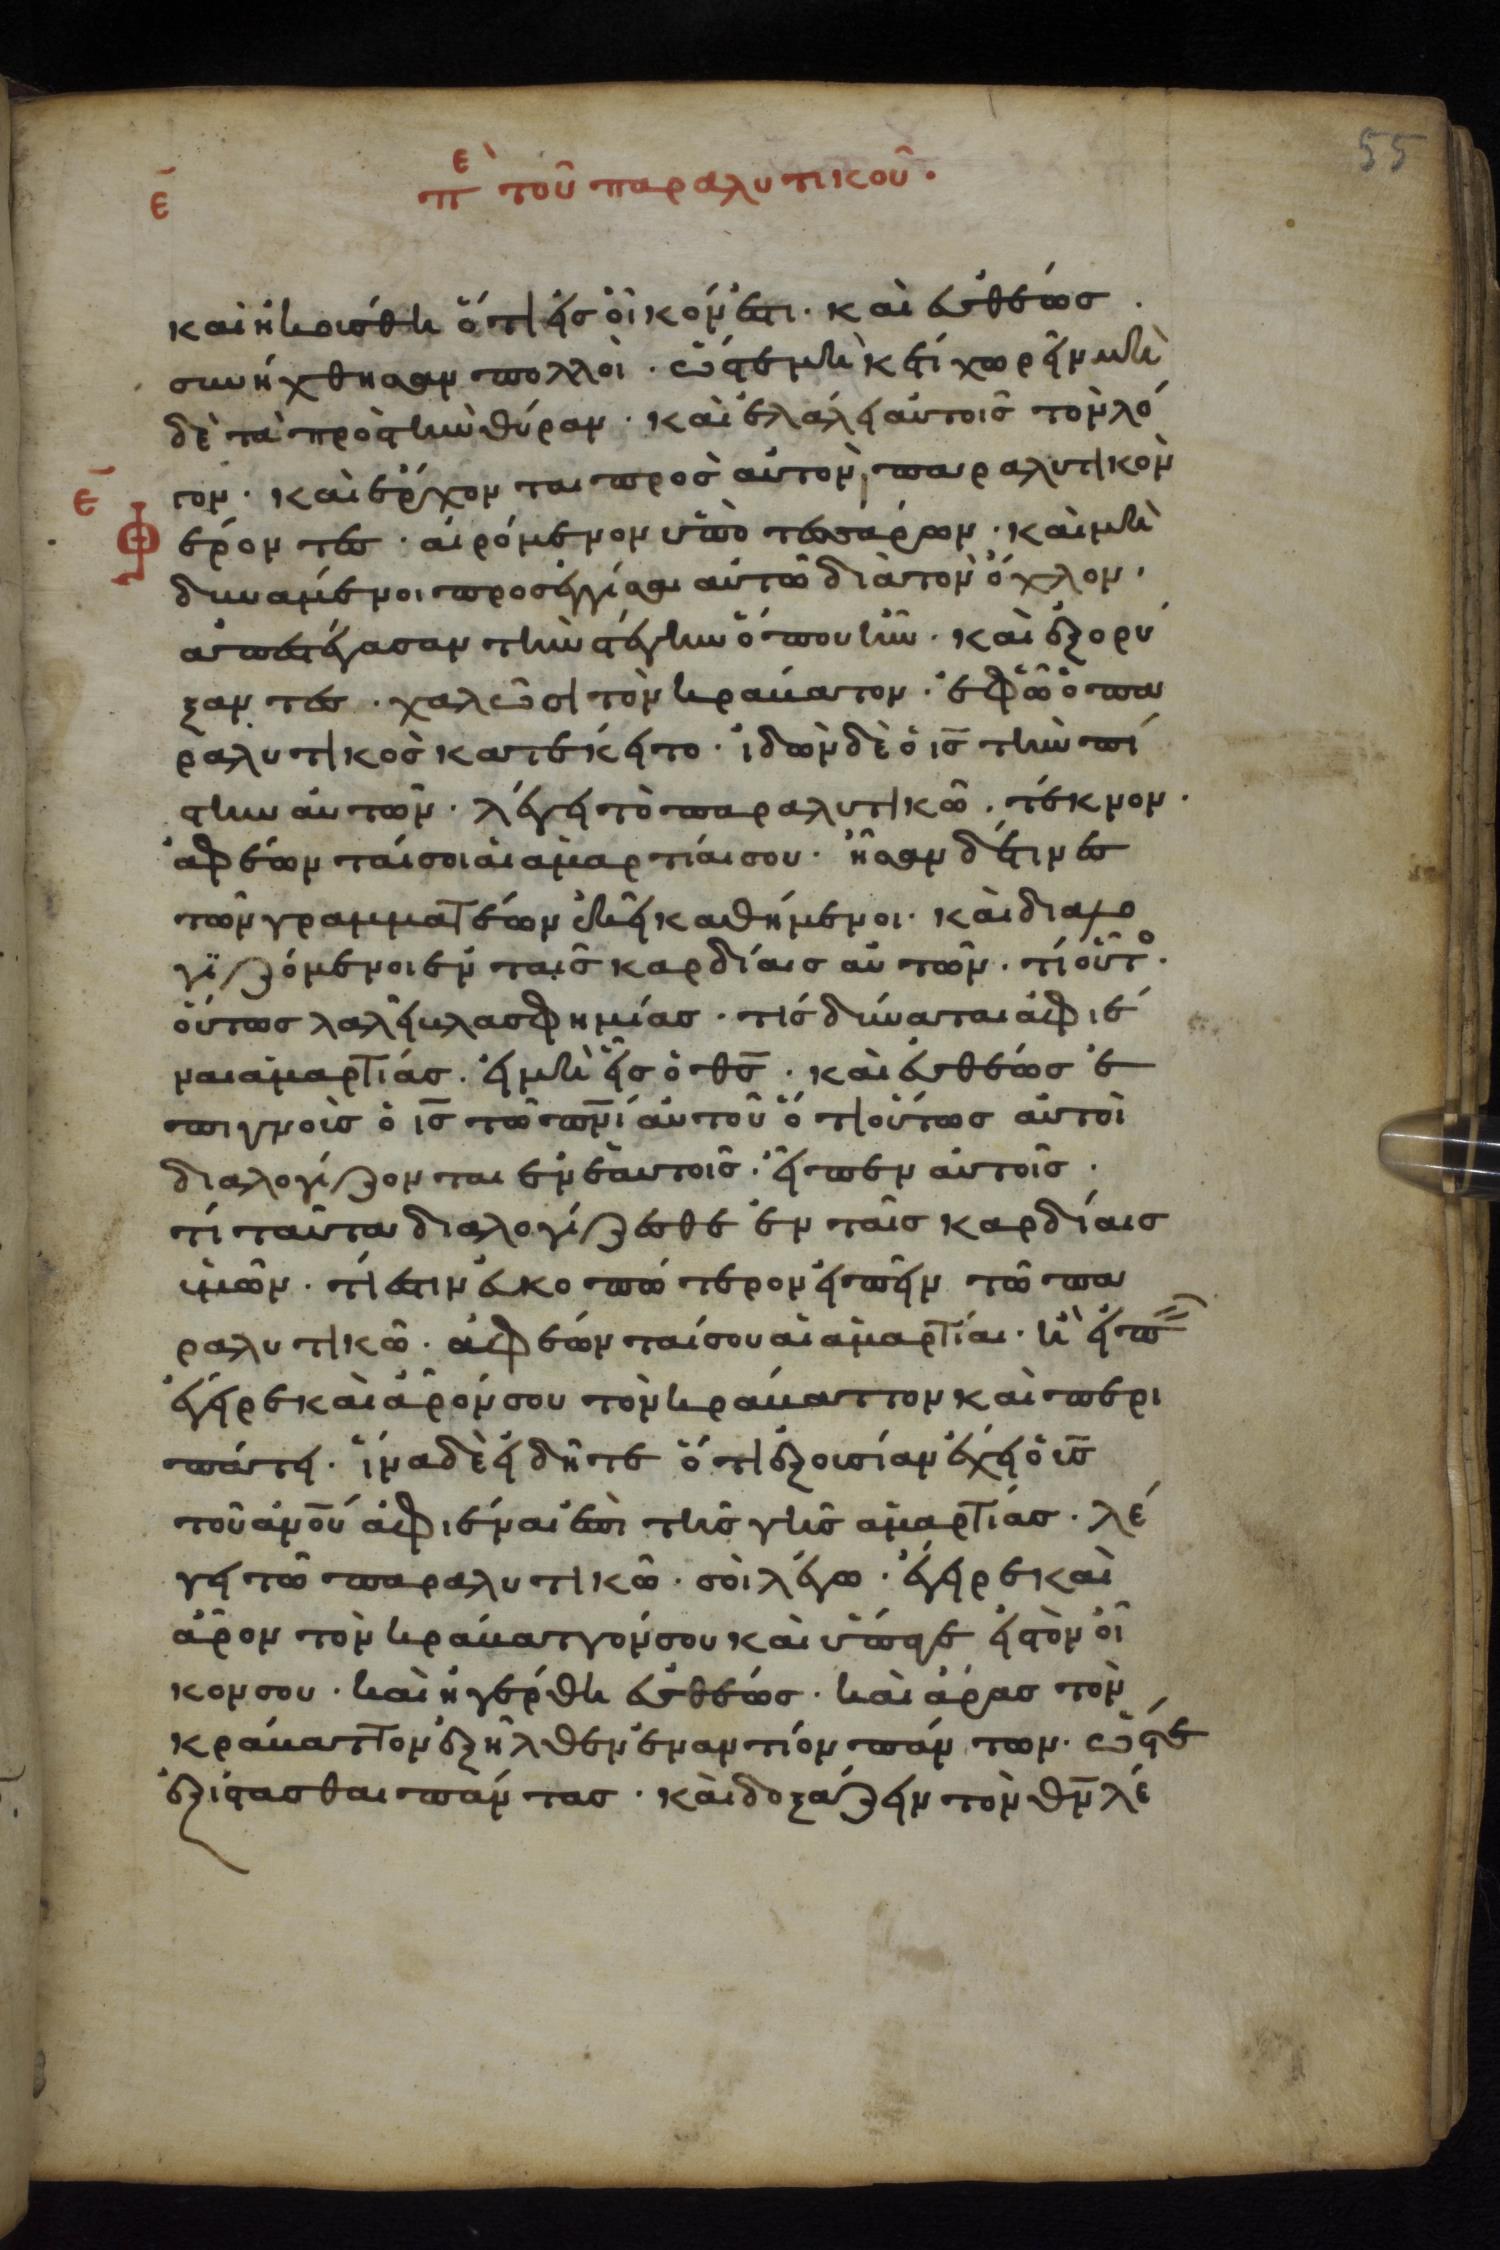 55
ε̄
πὲ τοῦ παραλυτικοῦ.
καὶ ἠκοίσθη ὅτι εἰς οἶκόν ἐστι. καὶ εὐθέως.
συνήχθησαν πολλοὶ. ὥστε μὴ κέτι χωρεῖν μὴ
δὲ τὰ πρὸς τὴν θύραν. καὶ ἐλάλει αὐτοῖς τὸν λό
γον. καὶ ἔρχονται προς αὐτὸν, παραλυτικὸν
ε̄
φέροντες. αἰρόμενον ὑπὸ τεσσάρων. καὶ μὴ
δυναμένοι προσεγγίσαι αὐτῶ διὰ τὸν ὄχλον.
ἀπεστέγασαν τὴν στέγην ὅπου ἦν. καὶ ἐξορύ
ξαντες. χαλῶσι τὸν κράβατον. ἐφ ὧ ὁ πα
ραλυτικὸς κατεκειτο. ἰδὼν δὲ ὁ ις̄ τὴν πί
στιν αὐτῶν. λέγει τὸ παραλυτικῶ. τέκνον.
ἀφέωνταί σοι αἱ ἁμαρτίαι σου. ἦσαν δέ τινες
τῶν γραμματέων ἐκεῖ καθήμενοι. καὶ διαλο
γϊζόμενοι ἐν ταῖς καρδίαις αὐτῶν. τί οὗτο.
οὕτως λαλεῖ βλασφημίας. τίς δύναται ἀφιέ
ναι ἁμαρτίας. εἰ μὴ εἷς ὁ θς̄. καὶ εὐθέως ἐ
πιγνοὺς ὁ ις̄ τῶ πν̄ί αὐτοῦ ὅτι οὕτως αὐτοὶ
διαλογίζονται ἐν ἑαυτοῖς. εἶπεν αὐτοῖς.
τί ταῦτα διαλογίζεσθε ἐν ταῖς καρδίαις
ὑμῶν. τί ἐστιν εὐκοπώτερον εἰπεῖν τῶ πα
ραλυτικῶ. ἀφέωνταί σου αἱ ἁμαρτίαι. ἢ εἰπ
ἔγειρε καὶ ἆρόν σου τὸν κράβαττον καὶ περι
πάτει. ἵνα δὲ εἰδῆτε ὅτι ἐξουσίαν ἔχει ὁ υς̄
τοῦ ἀνο̄υ ἀφιέναι ἐπὶ τῆς γῆς ἁμαρτίας. λέ
γει τῶ παραλυτικῶ. σοὶ λέγω. ἔγειρε καὶ
ἆρον τὸν κράβατγόν σου καὶ ὕπαγε εἰς τὸν οἶ
κον σου. καὶ ἠγέρθη εὐθέως. καὶ ἄρας τὸν
κράβαττον ἐξῆλθεν ἐναντίον πάντων. ὥστε
ἐξίστασθαι πάντας. καὶ δοξάζειν τὸν θν̄ λέ